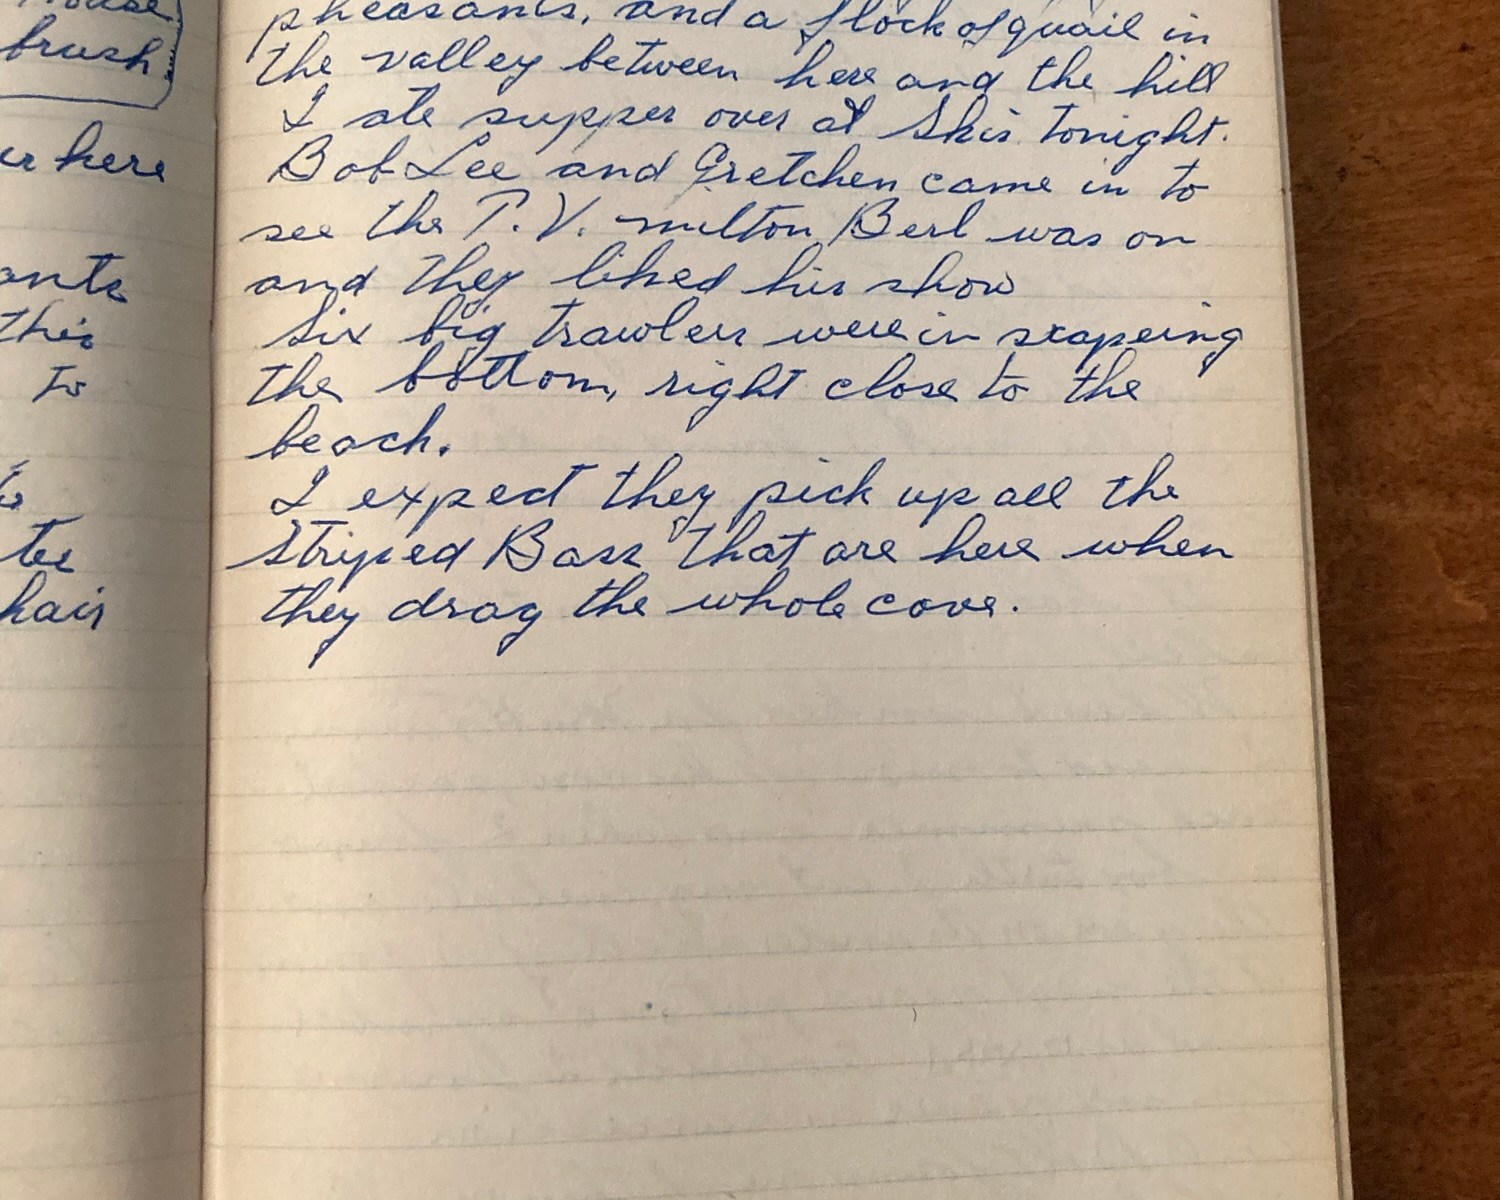 house
brush
er here
ants
this
to
to
te
hair
pheasants, and a flock of quail in
the valley between here and the hill
I ate supper over at Skis tonight.
Bob Lee and Gretchen came in to
see the T.V. milton Berl was on
and they liked his show
Six big trawlers were in scapeing
the bottom, right close to the
beach.
I expect they pick up all the
Striped Bass that are here when
they drag the whole cove.